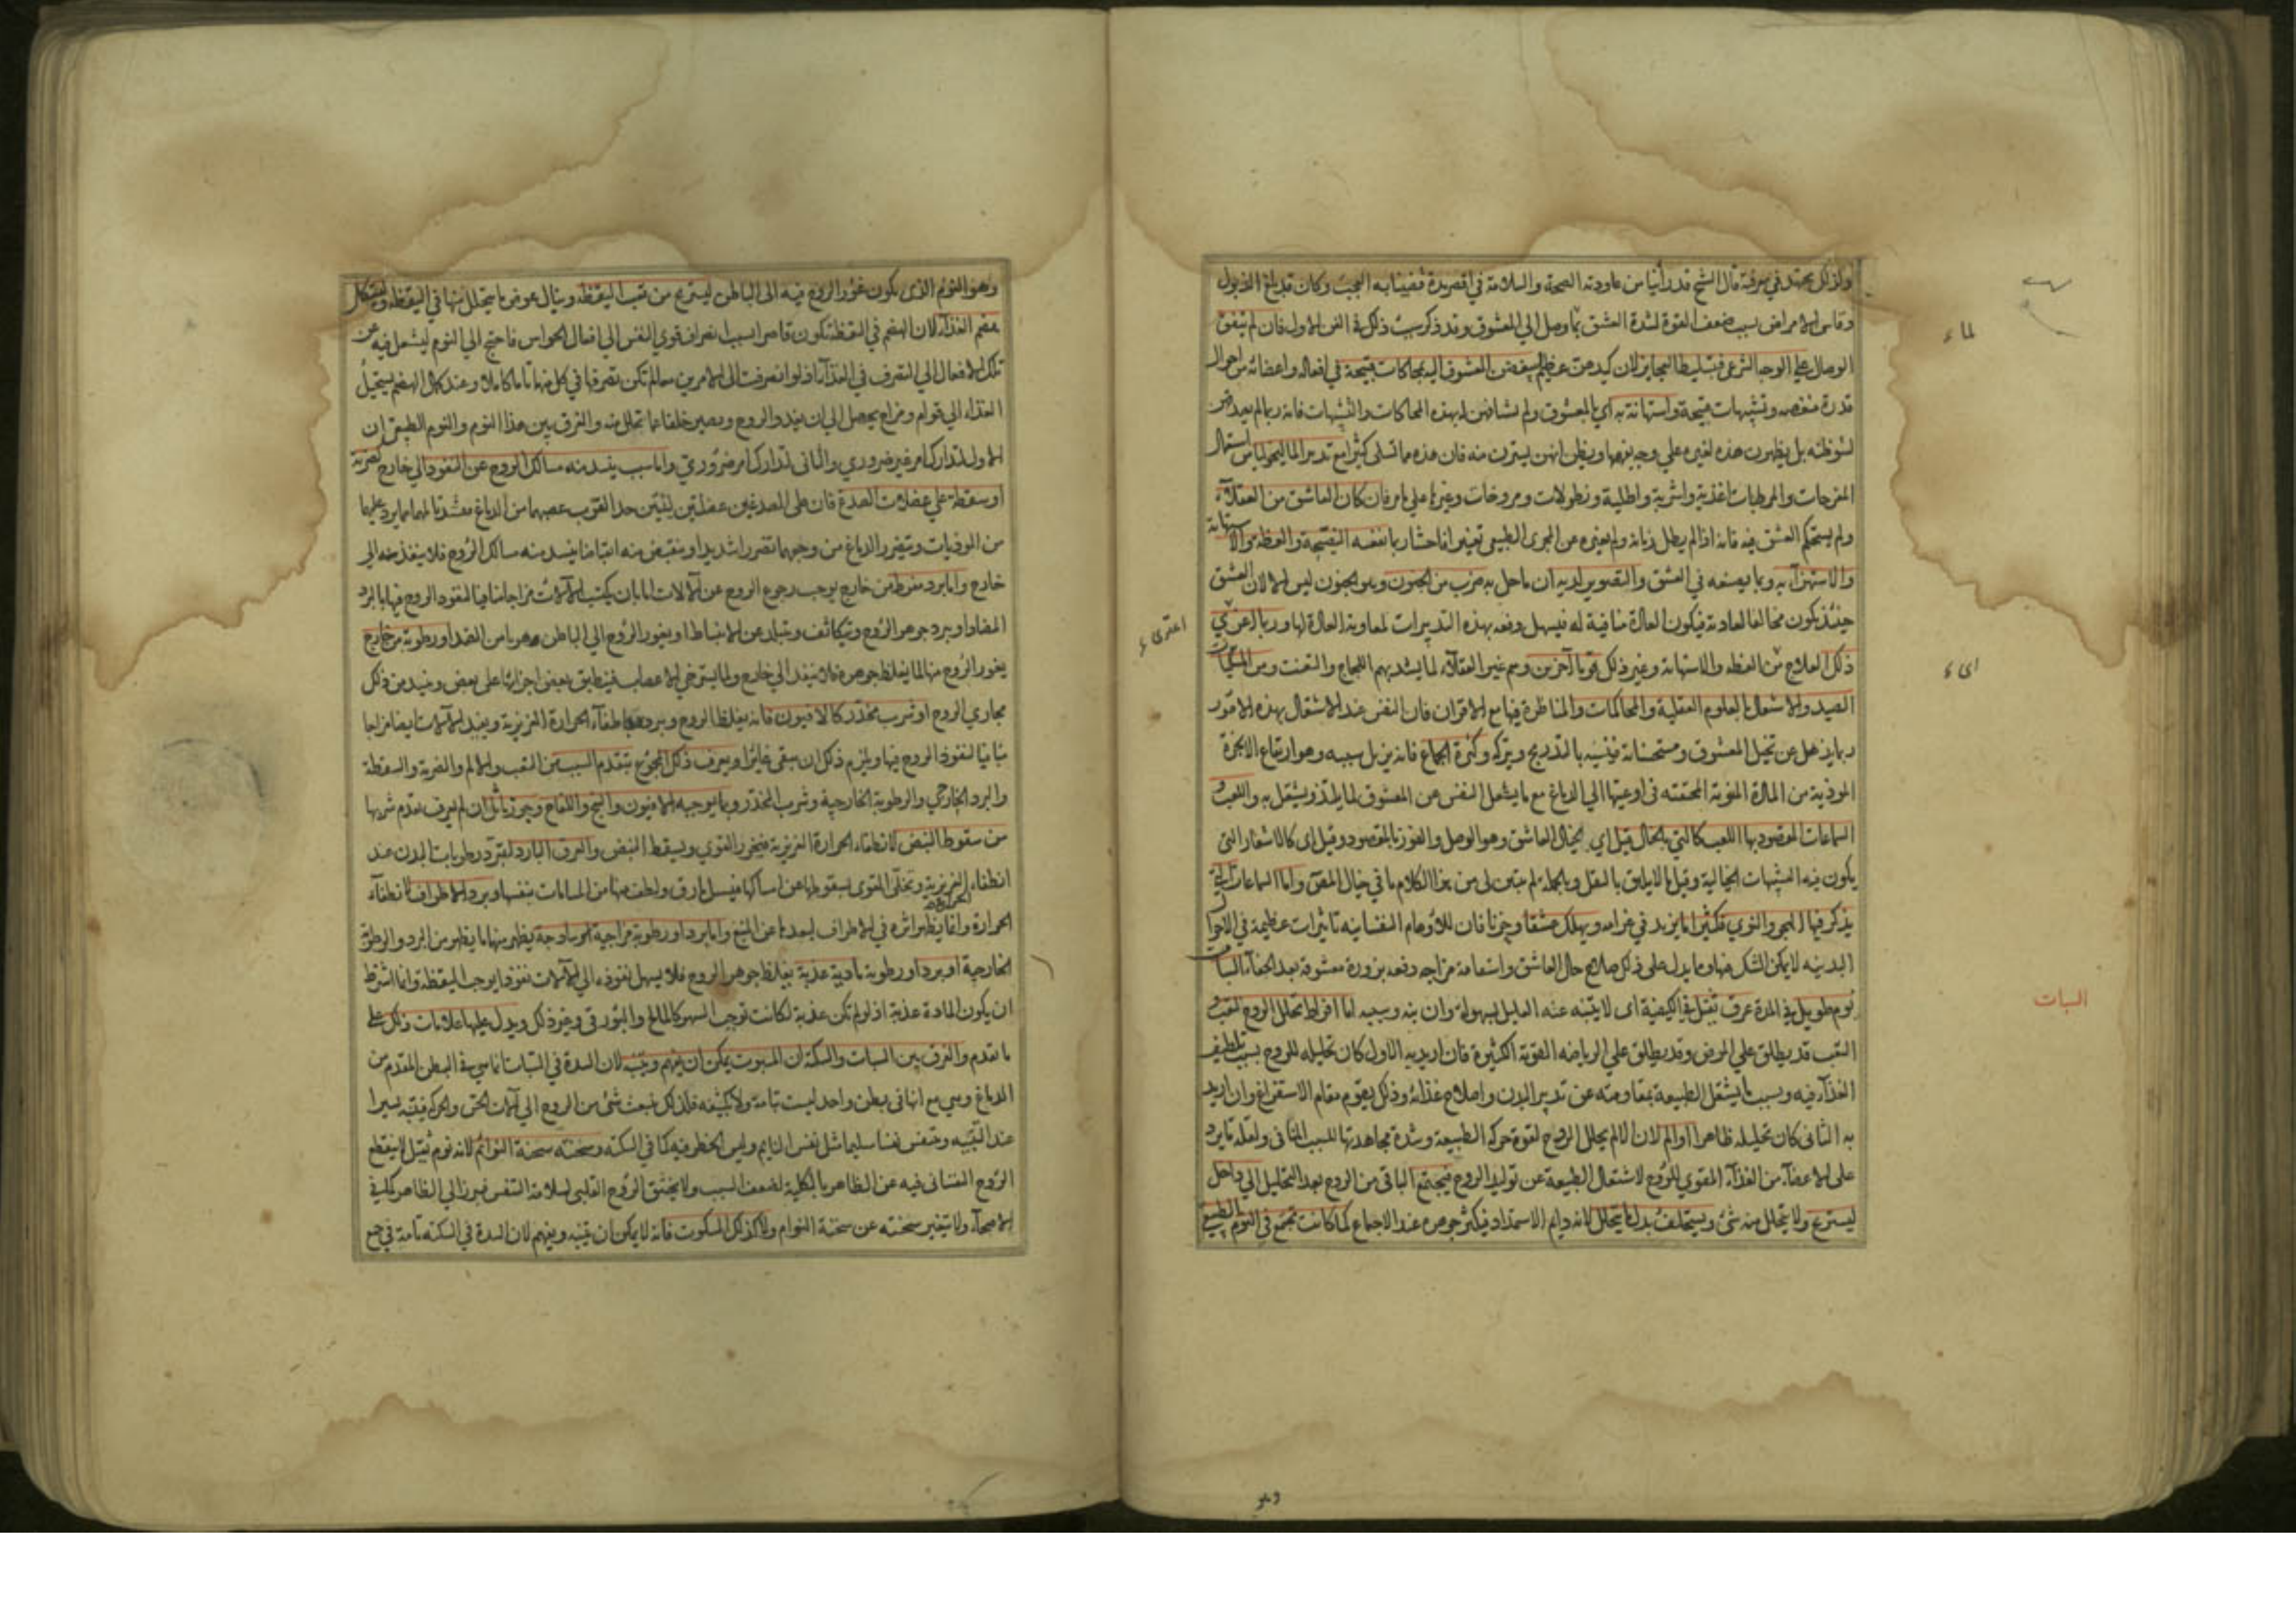 ولذلك يجتهد في معرفته قال الشيخ قد رأينا من عاودته الصحة والسلامة في اقصر مدة فقضينا به العجب وكان قد بلغ الذبول
وقاسى الامراض بسبب ضعف القوة لشدة العشق لما وصل الى المعشوق وقد ذكر سبب ذلك في الفن الاول فان لم يتفق
الوصال على الوجه الشرعي فتسليط العجايز لان كيدهن عظيم ليبغضن المعشوق اليه بمحاكات قبيحة في افعاله واعضائه من احوال
قذرة منغصه وتشبيهات قبيحة واستهانة به اي بالمعشوق ولم يشافهن بهذه المحاكات والتشبيهات فانه ربما لم
بل يظهرن هذه لغيره على وجه يفهمها ويظن انهن يسترن منه فان هذه مما تسلى كثيرا مع تدبير الماليخوليا من استعمال
المفرحات والمرطبات اغذية واشربة واطلية ونطولات ومروخات وغيرها على ما مر فان كان العاشق من العقلاء
ولم يستحكم العشق فيه فانه اذا لم يطل زمانه ولم يغيره عن المجرى الطبيعي تغييرا فاحشا ربما نفعه النصيحة والعظة والاستهانة
والاستهزاء به وبما يصنعه في العشق والتصوير لديه ان ما حل به ضرب من الجنون وهو الجنون ليس الا لان العشق
حينئذ يكون مخالفا لعادته فيكون العادة منافية له فيسهل دفعه بهذه التدبيرات لمعاونة العادة لها وربما
ذلك العلاج من العظه والاستهانة وغير ذلك قوما آخرين وهم غير العقلاء لما يشتد بهم اللجاج والتعنت ومن المسليات
الصيد والاشتغال بالعلوم العقلية والمحاكمات والمناظرة فيها مع الاقران فان النفس عند الاشتغال بهذه الامور
ربما يذهل عن تخيل المعشوق ومستحسناته فينسيه بالتدريج ويتركه وكثرة الجماع فانه يزيل سببه وهو ارتفاع الابخرة
الموذية من المادة المنوية المحتقنة في اوعيتها الى الدماغ مع ما يشغل النفس عن المعشوق لما يلتذ ويشتغل به واللعب و
السماعات المقصود بها اللعب كالتي بالخيال قيل اي بخيال العاشق وهو الوصل والفوز بالمقصود وقيل اى كالاشعار التى
يكون فيه التشبيهات الخيالية وقيل ما لا يليق بالعقل وبالجملة لم يتبين لى من هذا الكلام ما في خيال المصنف واما السماعات التي
يذكر فيها الهجر والنوى فكثيرا ما يزيد في غرامه ويهلك عشقا وحزنا فان للاوهام النفسانيه تاثيرات عظيمة في الاحوال
البدنيه لا يمكن الشك فيها وما يدل على ذلك صلاح حال العاشق واستقامة مزاجه دفعه بزورة معشوقة بعد الجفاء السبات
نوم طويل في المدة غرق ثقيل في الكيفية اى لا يتنبه عنه العليل بسهولة وان نبه وسببه اما افراط تحلل الروح لتعب و
التعب قد يطلق على المرض وقد يطلق على الرياضه القوية الكثيرة فان اريد به الاول كان تحليله للروح بسبب تلطيف
الغذاء فيه وبسبب ما يشتغل الطبيعة بمقاومته عن تدبير البدن واصلاح غذائه وذلك يقوم مقام الاستفراغ وان اريد
به الثانى كان تحليله ظاهرا او الم لان الالم يحلل الروح لقوة حركة الطبيعة وشدة مجاهدتها للسبب المنافى ولقلة ما يرد
على الاعضاء من الغذاء المقوي للروح لاشتغال الطبيعة عن توليد الروح فيجتمع الباقى من الروح بعد التحليل الى داخل
ليستريح ولا يتحلل منه شئ ويستخلف بدل ما يتحلل لانه دايم الاستمداد فيكثر جوهره عند الاجتماع كما كانت تجتمع في النوم الطبيعي
لماء
اىء
السبات
اعترىء
وهو
وهو النوم الذى يكون غور الروح فيه الى الباطن ليستريح من تعب اليقظة وينال عوض ما يتحلل منها في اليقظه وليستكمل
هضم الغذاء لان الهضم في اليقظة تكون قاصرا بسبب انصراف قوى النفس الى افعال الحواس فاحتيج الى النوم ليشتغل فيه عن
تلك الافعال الى التصرف في الغذاء اذ لو انصرفت الى الامرين معا لم تكن تصرفها في كل منهما تاما كاملا وعند كمال الهضم يستحيل
الغذاء الى قوام ومزاج يحصل الى ان يغذو الروح ويصير خلفا عما تحلل منه والفرق بين هذا النوم والنوم الطبيعي ان
الاول لتدارك امر غير ضروري والثانى لتدارك امر ضروري واما سبب ينسد منه مسالك الروح عن النفوذ الى خارج كضربة
او سقطة على عضلات الصدغ فان على الصدغين عضلتين لينتين جدا لقرب عصبهما من الدماغ لما يرد عليها
من الموذيات ويتضرر الدماغ من وجعهما تضررا شديدا وينقبض منه انقباضا فينسد منه مسالك الروح فلا ينفذ منه الى
خارج واما برد مفرط من خارج يوجب رجوع الروح عن الآلات اما بان يكتسب الآلات مزاجا منافيا لنفوذ الروح فيها بالبرد
المضاد او يبرد جوهر الروح ويتكاثف ويتبلد عن الانبساط او يغور الروح الى الباطن هربا من الضد او رطوبة من خارج
يغور الروح منها لما يغلظ جوهره فلا ينفذ الى خارج ولما يسترخي الاعصاب فينطبق بعض اجزائها على بعض وينسد من ذلك
مجاري الروح او شرب مخدر كالافيون فانه يغلظ الروح ويبرده باطفاء الحرارة الغريزية ويفيد الآلات ايضا مزاجا
منافيا لنفوذ الروح فيها ويلزم ذلك ان يبقى غايرا ويعرف ذلك الجميع بتقدم السبب من التعب والالم والضربة والسقطة
والبرد الخارجي والرطوبة الخارجية وشرب المخدر وما يوجبه الافيون والبنج واللفاح وجوز ماثل ان لم يعرف تقدم شربها
من سقوط النبض لانطفاء الحرارة الغريزية فيخور القوى ويسقط النبض والعرق البارد لتبرد رطوبات البدن عند
انطفاء الحرارة الغريزية وتخلى القوى بسقوطها عن امساكها فيسيل ما رق ولطف منها من المسامات بنفسها وبرد الاطراف لانطفاء
الحرارة وانما يظهر اثره في الاطراف لبعدها عن المنبع واما برد او رطوبة مزاجية ساذجة يظهر منهما ما يظهر من البرد والرطوبة
الخارجية او برد او رطوبة مادية عذبة يغلظ جوهر الروح فلا يسهل نفوذه الى الآلات نفوذا يوجب اليقظة وانما اشترط
ان يكون المادة عذبة اذ لو لم تكن عذبة لكانت توجب السهر كالمالح والبورقى وغير ذلك ويدل عليها علامات ذلك على
ما تقدم والفرق بين السبات والسكتة ان المسبوت يمكن ان يفهم وينبه لان السدة في السبات انما هي في البطن المقدم من
الدماغ وهي مع انها فى بطن واحد ليست تامة ولا كثيفه فلذلك ينبعث شئ من الروح الى آلات الحس والحركة فيتنبه يسيرا
عند التنبيه ويتنفس نفسا سليما مثل نفس النايم وليس الخطر فيه كما في السكتة وسحنته سحنة النوائم لانه نوم ثقيل لا ينقطع
الروح النفسانى فيه عن الظاهر بالكلية لضعف السبب ولا يختنق الروح القلبى لسلامة التنفس فيبرز الى الظاهر كما في
الاصحاء ولا يتغير سحنته عن سحنة النوام ولا كذلك المسكوت فانه لا يمكن ان ينبه ويفهم لان السدة في السكته تامة في جميع